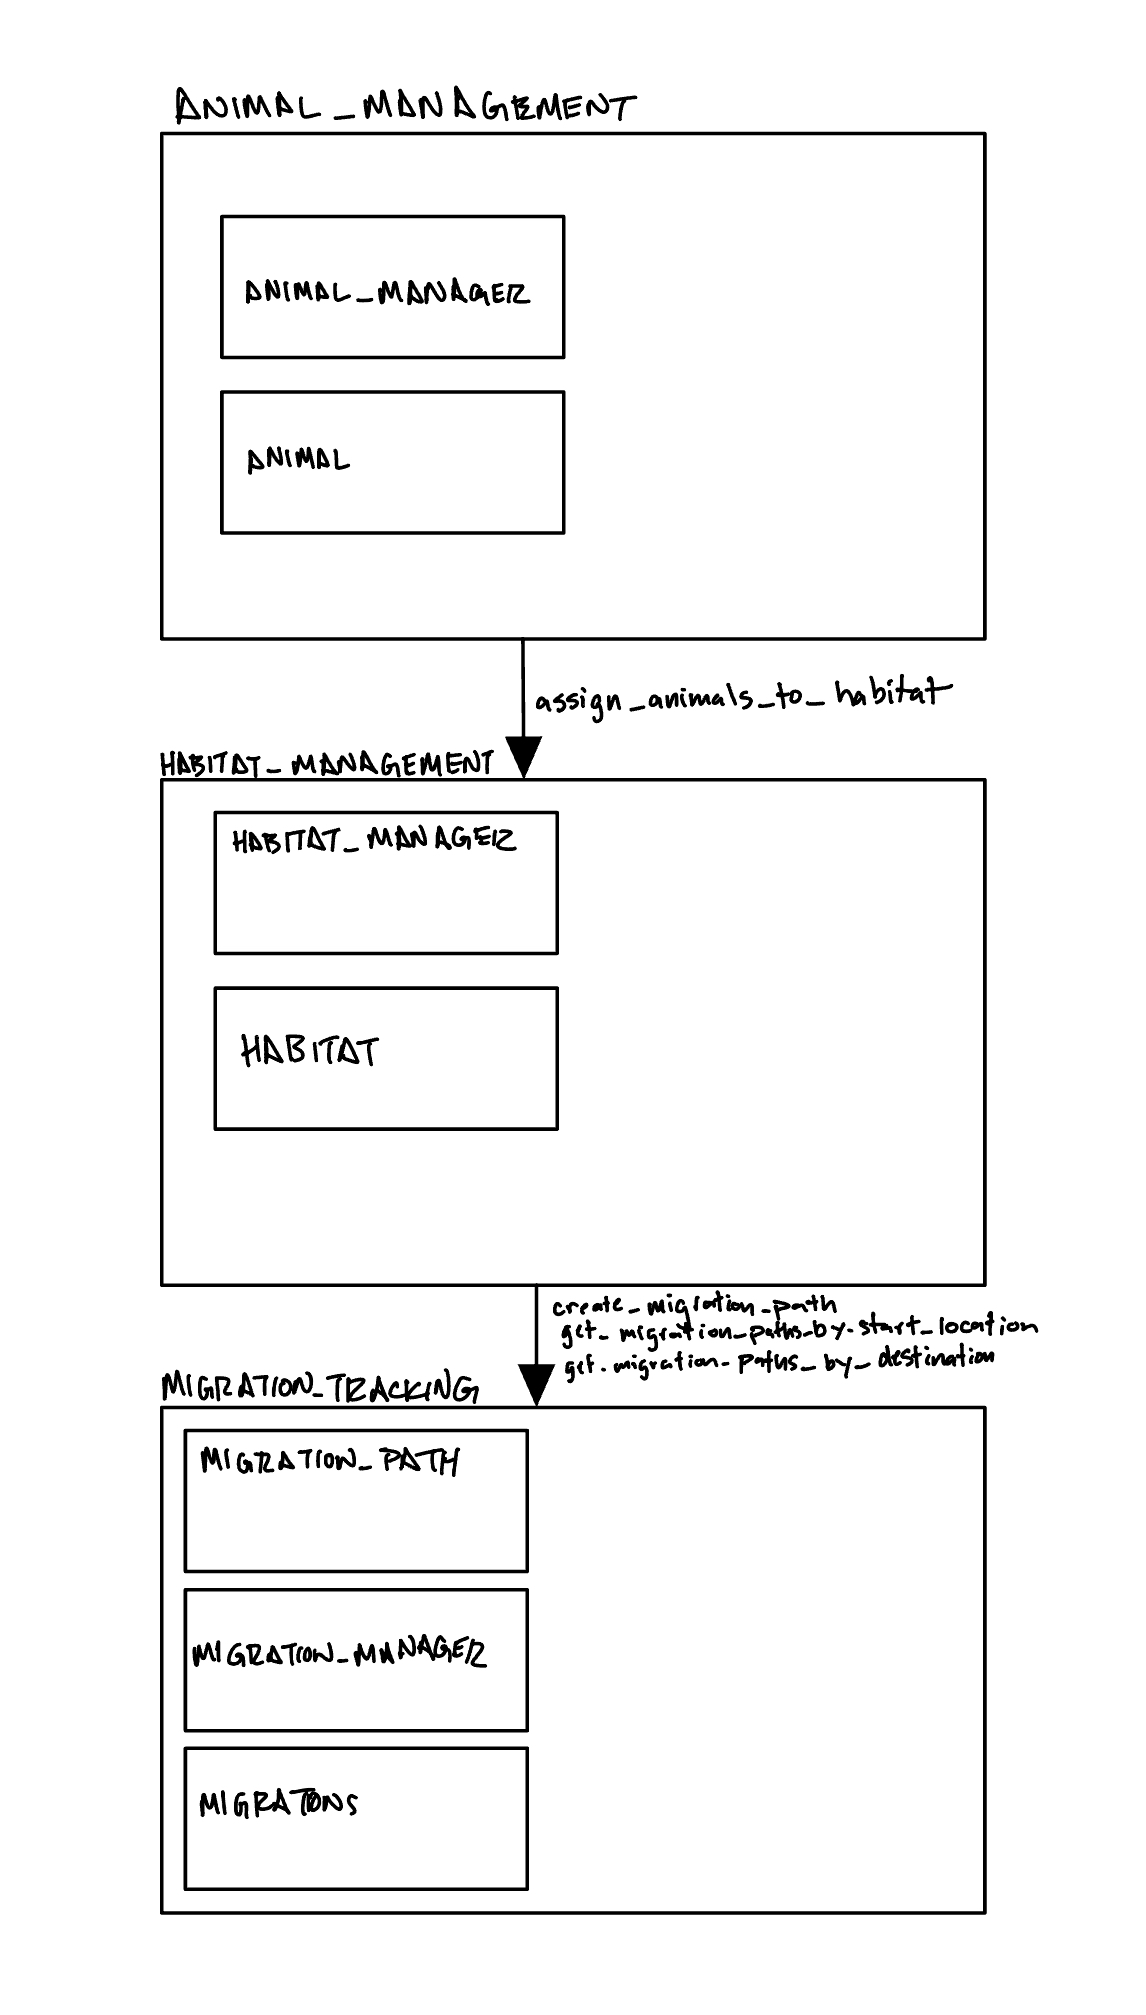 ANIMAL_MANAGEMENT
ANIMAL_MANAGER
ANIMAL
assign_animals_to_habitat
HABITAT_MANAGEMENT
HABITAT_MANAGER
HABITAT
create_migration_path
get_migration_paths_by-start_location
get-migration-paths_by_destination
MIGRATION_TRACKING
MIGRATION_PATH
MIGRATION_MANAGER
MIGRATIONS